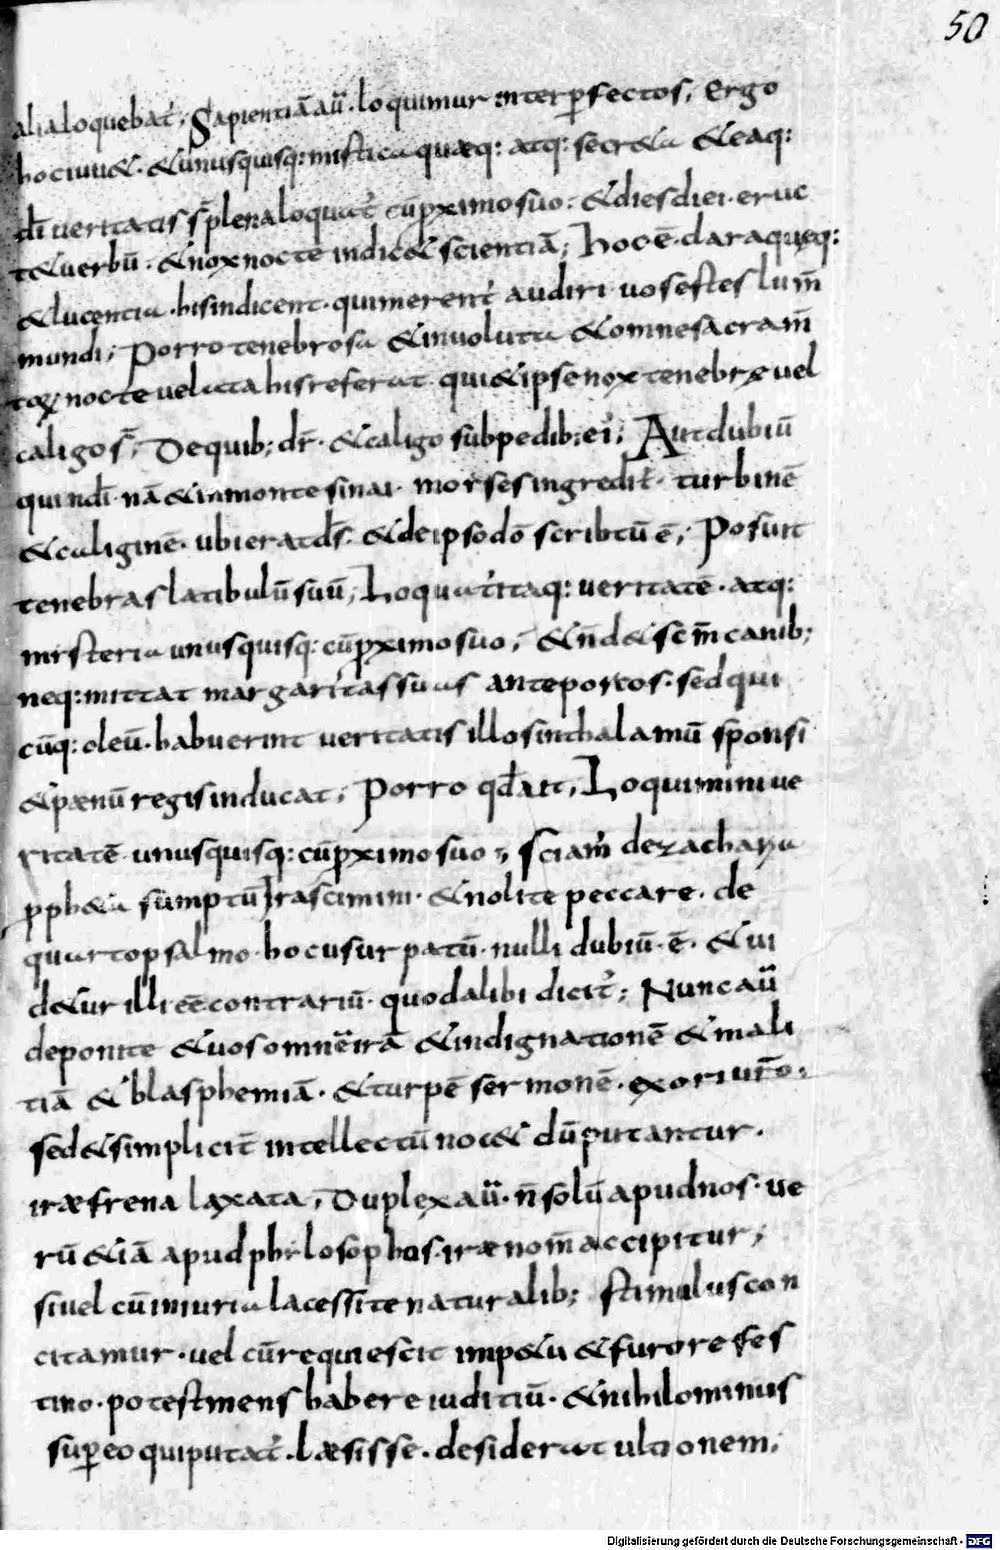 50
alia loquebat̄; Sapientiā aū. loquimur inter ꝑfectos; Ergo
hoc iuu&. & unusquisq: mistica quæq: atq: secr&a & eaq:
dī ueritatis s̄ plena loquat̄ cū ꝓximo suo. & dies diei. eruc
t& uerbū. & nox nocte indic& scientiā; Hoc ē. clara quęq:
& lucentia. his indicent. qui merent̄ audiri uos estes lum̄
mundi; Porro tenebrosa & inuoluta & omne sacram̄
toꝝ nocte uelata his referat. qui & ipse nox tenebræ uel
caligo s̄; De quib; dr̄. & caligo sub pedib; ei'; Aut dubiū
qui ndī. nā & in monte sinai. moyses ingredit̄. turbinē
& caliginē. ubi erat d̄s. & de ipso dō scribtū ē; Posuit
tenebras latibulū suū; Loquat̄ itaq: ueritatē. atq:
misteria unusquisq: cū ꝓximo suo; & n̄ d& sc̄m canib;
neq: mittat margaritas suas ante porcos. sed qui
cūq: oleū. habuerint ueritatis illos in thalamū sponsi
& pænū regis inducat; Porro qd̄ ait; Loquimini ue
ritatē unusquisq: cū ꝓximo suo; sciam̄ de zacharia
ꝓph&a sumptū Irascimini. & nolite peccare. de
quarto psalmo. hoc usurpatū. nulli dubiū. ē. & ui
d&ur illi eē contrariū. quod alibi dicit̄; Nunc aū
deponite & uos omnē irā & indignationē & mali
tiā & blasphemiā. & turpē sermonē. ex ori ur̄o.
sed & simplicit̄ intellectū noc& dū putantur.
iræ frena laxata; Duplex aū. n̄ solū apud nos. ue
rū &iā apud philosophos. iræ nom̄ accipitur;
siuel cū iniuria lacessite naturalib; stimulus con
citamur. uel cū requiescit imp&u & furore fes
tino. potest mens habere iuditiū. & nihilominus
suꝑ eo qui putat̄. læsisse. desiderat ultionem;
Digitalisierung gefördert durch die Deutsche Forschungsgemeinschaft - DFG